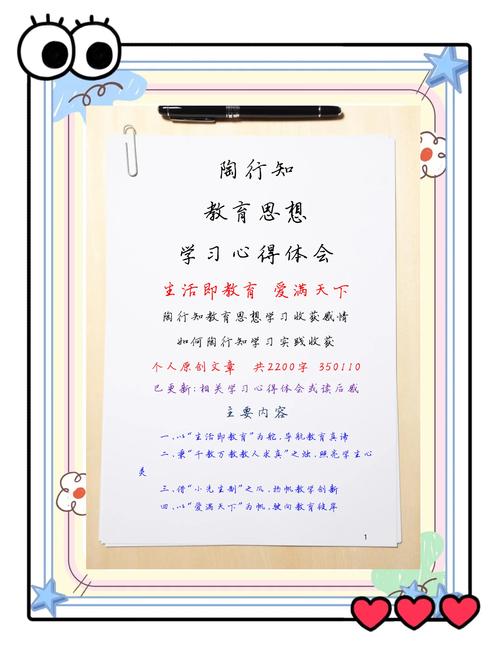 陶行知
教育思想
学习心得体会
生活即教育 爱满天下
陶行知教育思想学习收获感情
如何陶行知学习实践收获
个人原创文章 共2200字 350110
已更新:相关学习心得体会或读后感
主要内容
一、以“生活即教育”为舵，导航教育真谛
二、秉“千教万教教人求真”之烛，照亮学生心
灵
三、借“小先生制”之风，扬帆教学创新
四、以“爱满天下”为帆，驶向教育彼岸
1